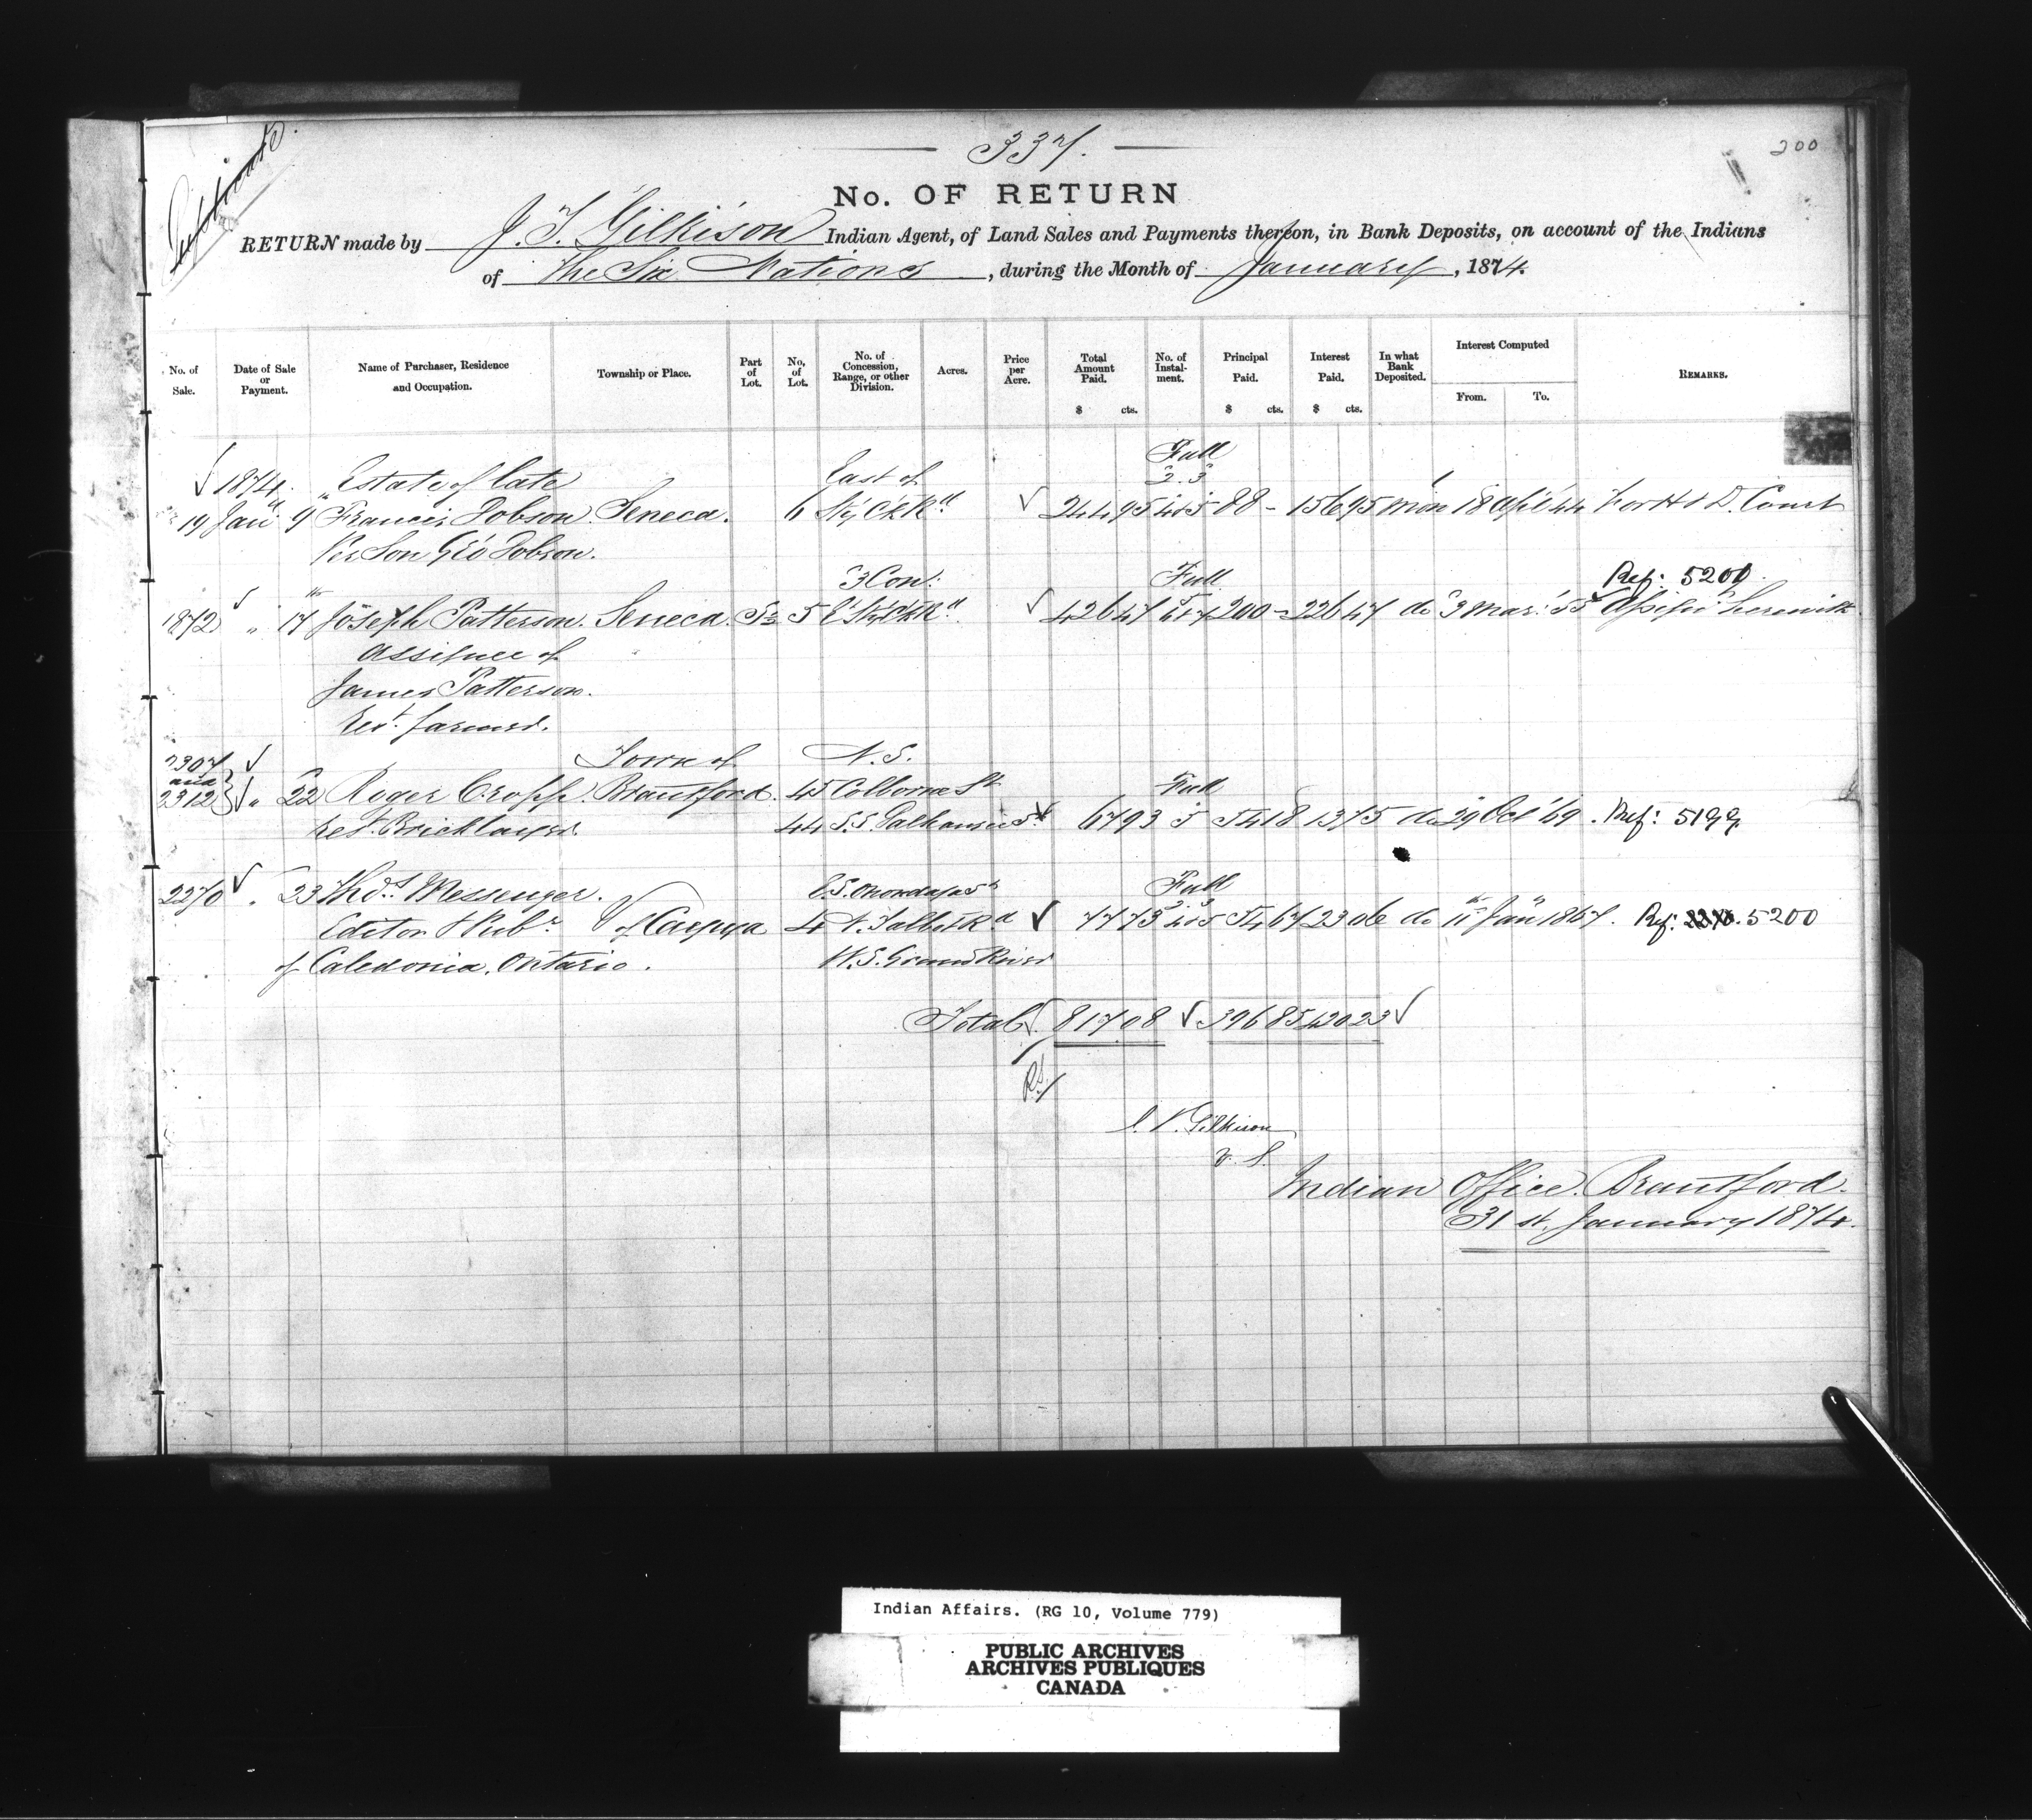 337.
200
Duplicate
No. OF RETURN
RETURN made by J. T. Gilkison Indian Agent, of Land Sales and Payments thereon, in Bank Deposits, on account of the Indians
of The Six Nations, during the Month of January, 1874.
No. of Sale. Date of Sale or Payment. Name of Purchaser, Residence and Occupation. Township or Place. Part of Lot. No. of Lot. No. of Concession, Range, or other Division. Acres. Price per Acre. Total Amount Paid. $ cts. No. of Instalment. Principal Paid. $ cts. Interest Paid. $ cts. In what Bank Deposited. Interest Computed From. To. REMARKS.
Full
1874. Estate of late East of 2.3
19 Jany 9 Francis Dobson. Seneca. 6 244 95 4 & 5 88 - 156 95 Mon 18 Apl '44
Per Son Geo Dobson.
3 Con: Full Ref: 5201
1872 " 17 Joseph Patterson. Seneca. 5 426 47 200 - 226 47 do 3 Mar: '55 herewith
Assignee of
James Patterson.
Rest. farmer.
2307 Town of N. S.
and
2312 " 22 Roger Cropp. Brantford. 45 Colborne St Full
rest. Bricklayer. 44 S.S. Dalhousie St 67 93 5 54 18 13 75 do 29 Oct '69. Ref: 5199
2270 " 23 Thos. Messenger. E.S. Onondaga St Full
Editor & Pubr V of Cayuga 4 N. Talbot Rd 77 73 54 67 23 06 do 11 Jany 1867. Ref: 2270. 5200
of Caledonia. Ontario. W.S. Grand River
Total 817 08 396 85 420 23
J. T. Gilkison
V. S.
Indian Office. Brantford.
31st. January 1874.
Indian Affairs. (RG 10, Volume 779)
PUBLIC ARCHIVES
ARCHIVES PUBLIQUES
CANADA